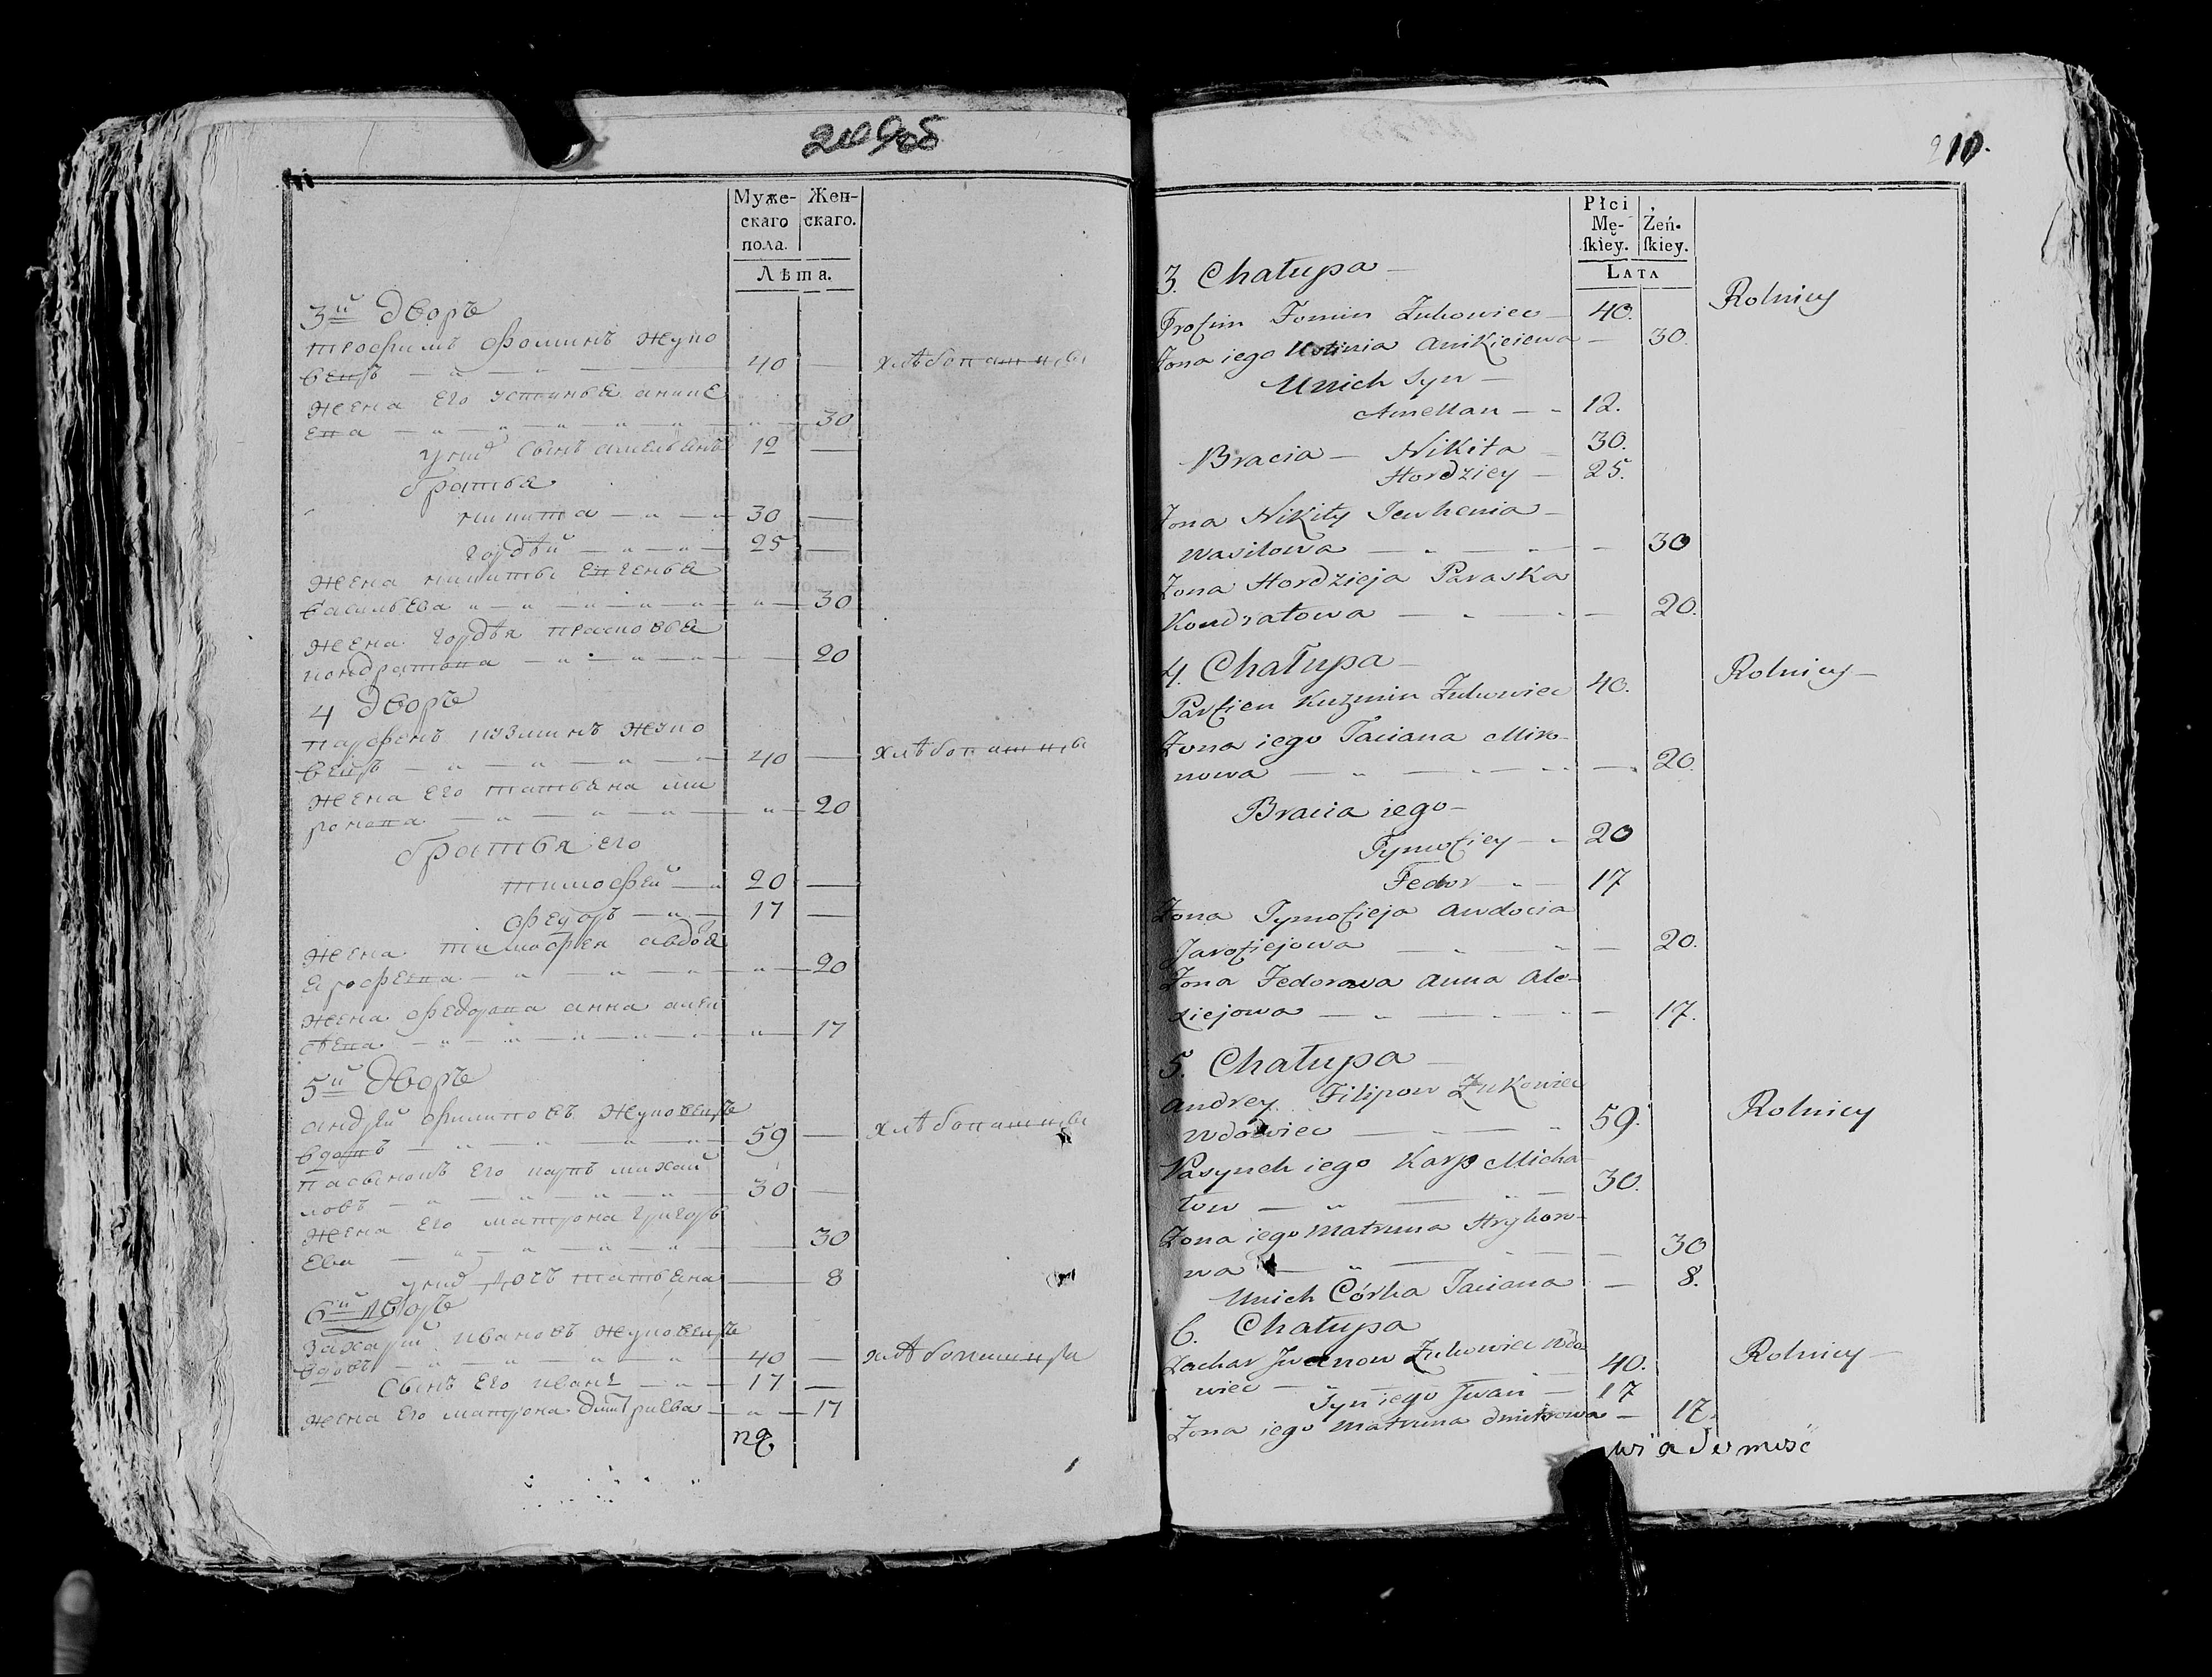 209об
Муже-
скаго
пола.
Жен-
скаго.
Лѣта.
3й Дворъ
трофимъ фоминъ жуко
вецъ — " — " — 40 — хлѣбопашцы
жена его устинья аники
ева — " — " — " — " — 30
у них сынъ амельянъ 12 —
братья
никита — " — " 30 —
гордѣй — " — " 25 —
жена никиты евгенья
васильева " — " — " — " — " — 30
жена гордѣя прасковья
кондратова — " — " — " — 20
4 Дворъ
парфенъ кузминъ жуко
вецъ — " — " — " — 40 — хлѣбопашцы
жена его татьяна ми
ронова — " — " — " — " — 20
братья его
тимофей — " 20 —
федоръ — " — 17 —
жена тимофея авдотя
ярофеева — " — " — " — 20
жена федорова анна алек
сѣева — " — " — " — " — 17
5й Дворъ
андрей филиповъ жуковецъ
вдовъ — " — " — " — 59 — хлѣбопашцы
пасынокъ его карпъ михай
ловъ — " — " — " — 30 —
жена его матрона григорь
ева — " — " — " — 30
у них дочь татьяна — 8
6й Дворъ
захарий ивановъ жуковецъ
вдовъ — " — " — " — 40 — хлѣбопашцы
сынъ его иванъ — " — 17 —
жена его матрона дмитриева — " — 17
210.
Płci
Mę-
ſkiey.
Żeń-
ſkiey.
LATA
3. Chałupa —
Trofim Fomin Żukowiec — 40. Rolnicy
Żona iego Ustinia Anikieiewa — 30.
U nich Syn —
Amellan — - 12.
Bracia — Nikita — 30.
Hordziey — 25.
Żona Nikity Jewhenia —
Wasilowa — " — " — 30
Żona Hordzieja Paraska
Kondratowa — " — " — 20.
4. Chałupa —
Parfien Kuzmin Żukowiec 40. Rolnicy —
Żona iego Taciana Miro-
nowa — " — " — 20.
Bracia iego —
Tymofiey — " 20
Fedor — " — 17
Żona Tymofieja Awdocia
Jarofiejowa — " — " — 20.
Żona Fedorowa Anna Ale-
xiejowa — " — " — 17.
5. Chałupa —
Andrey Filipow Żukowiec
Wdowiec — " 59. Rolnicy
Pasynek iego Karp Micha-
łow — " — " — 30.
Żona iego Matruna Hryhoro-
wa — " — 30
U nich Córka Taciana — 8.
6. Chałupa
Zachar Jwanow Żukowiec Wdo
wiec — " — 40. Rolnicy —
Syn iego Jwan — 17
Żona iego Matruna Dmitrowa — 17.
wiadomość